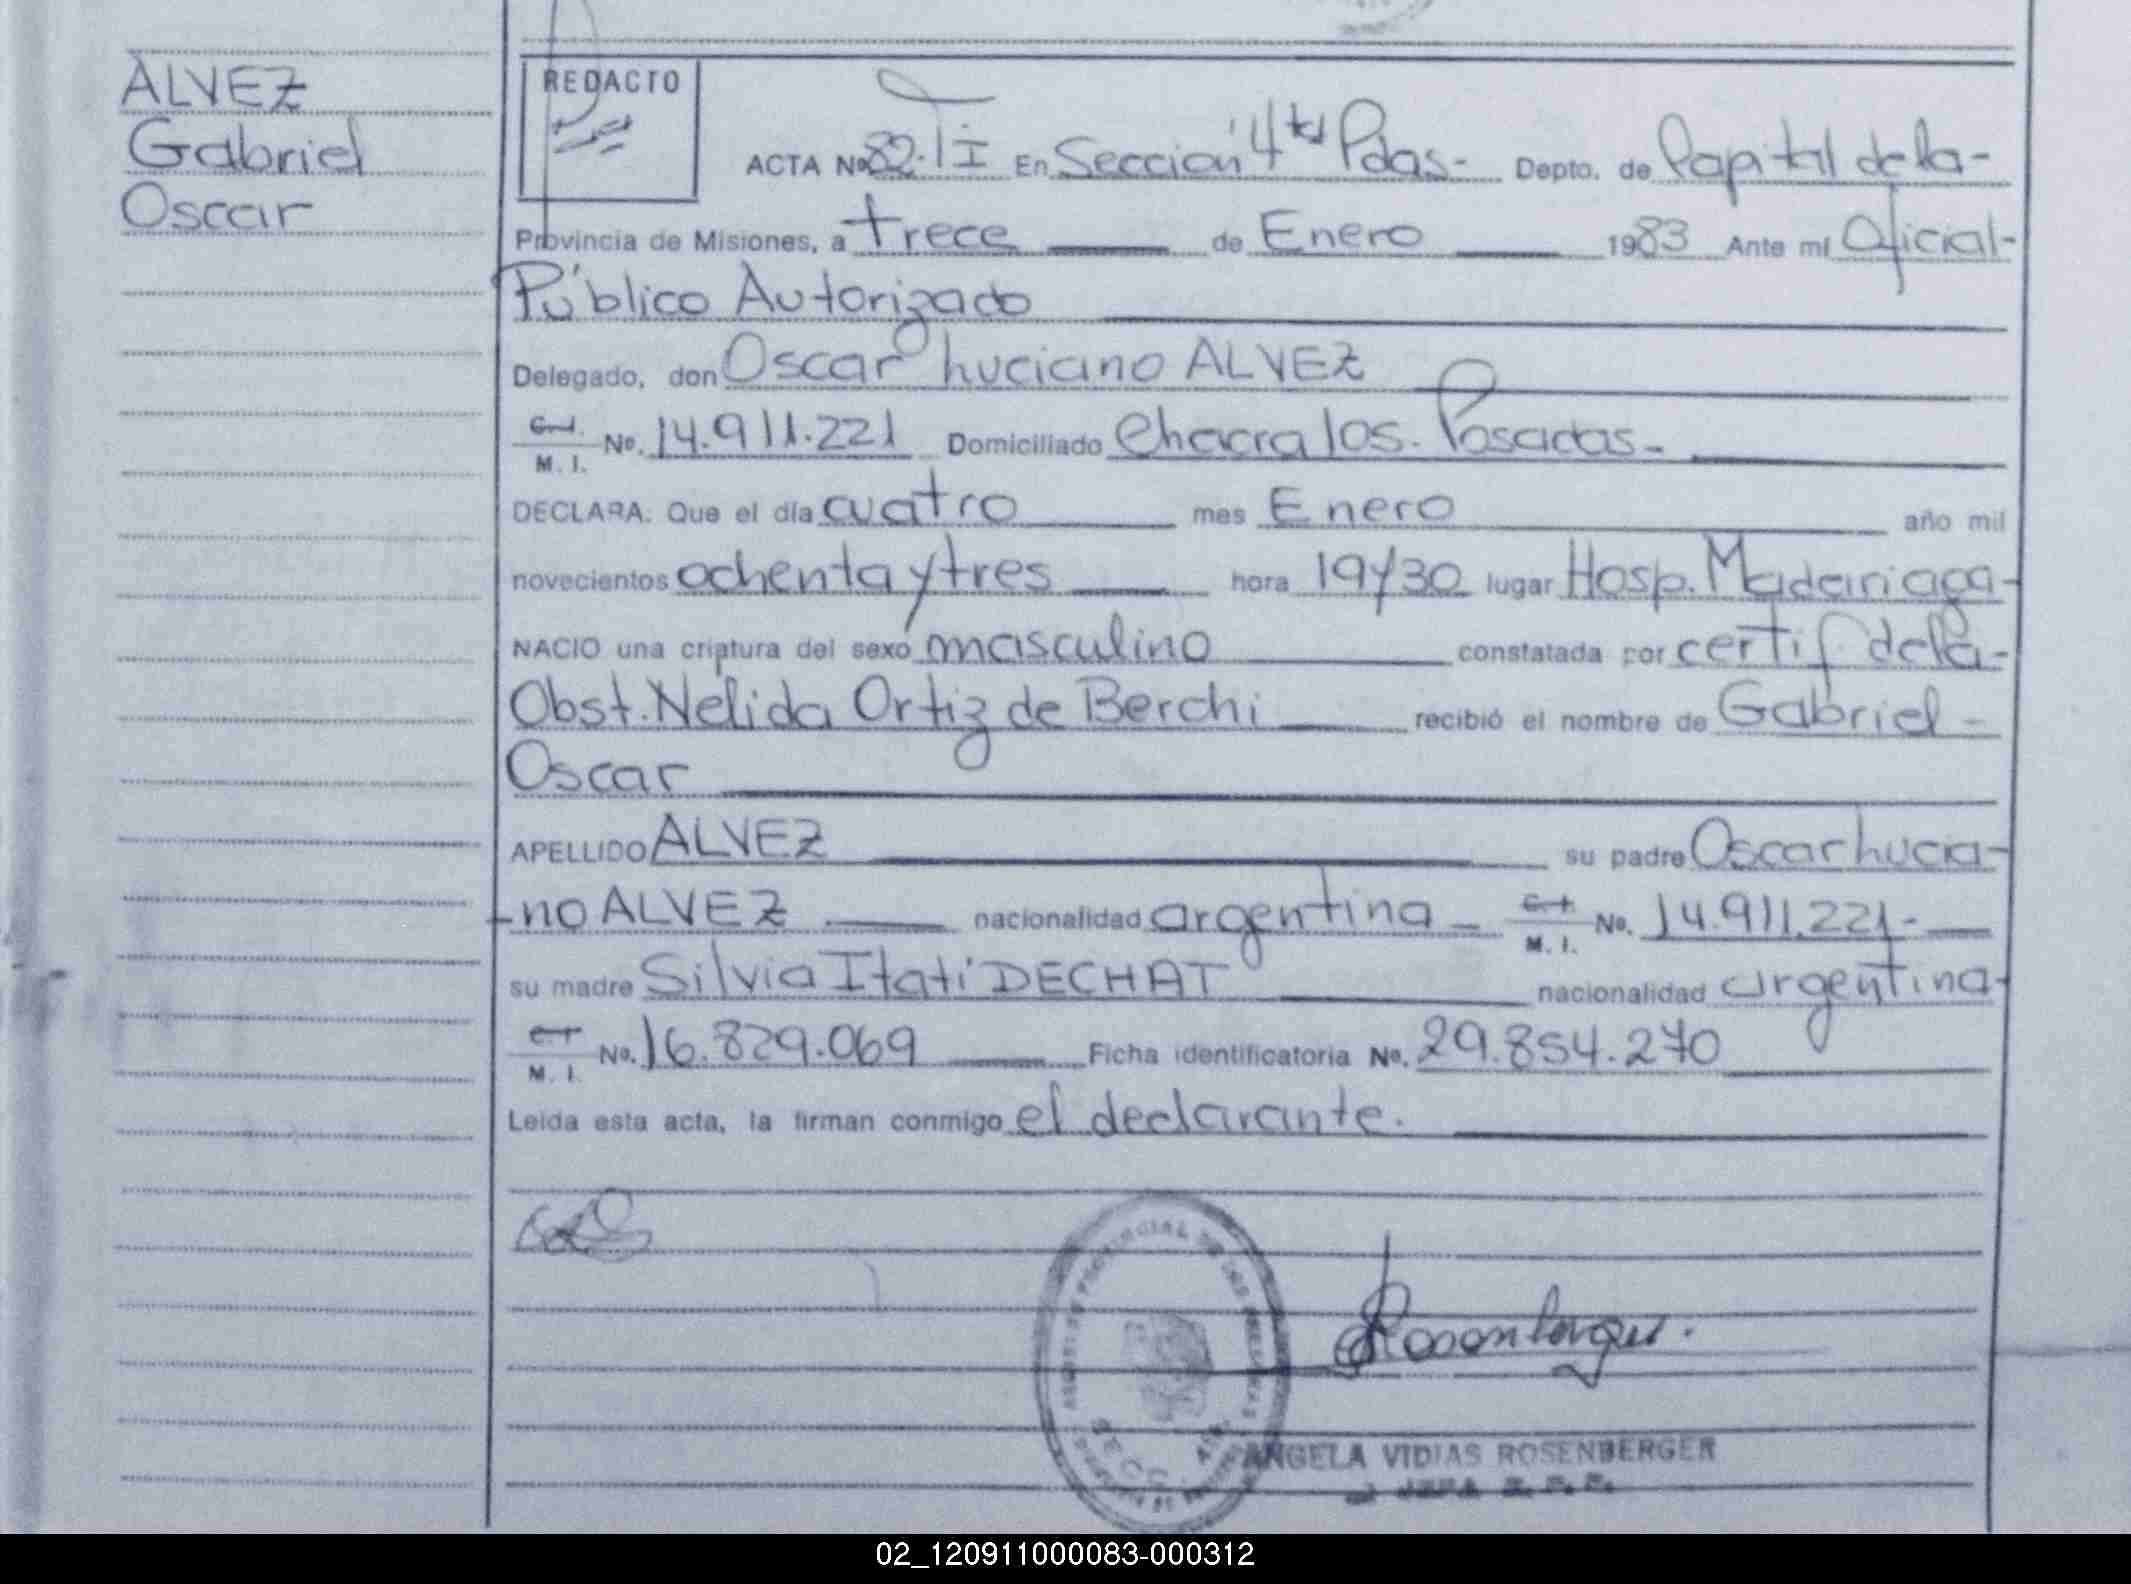 ALVEZ
Gabriel
Oscar
REDACTO
ACTA Nº 82-TI En Sección 4ta Pdas- Depto. de Capital de la-
Provincia de Misiones, a trece de Enero 1983 Ante mí Oficial-
Público Autorizado
Delegado, don Oscar Luciano ALVEZ
C.I. M. I. No. 14.911.221 Domiciliado Chacra 105. Posadas-
DECLARA: Que el día cuatro mes Enero año mil
novecientos ochenta y tres hora 19y30 lugar Hosp. Madariaga-
NACIO una criatura del sexo masculino constatada por certif de la-
Obst. Nélida Ortiz de Berchi recibió el nombre de Gabriel-
Oscar
APELLIDO ALVEZ su padre Oscar Lucia-
-no ALVEZ nacionalidad argentina - C.I. M. I. No. 14.911.221-
su madre Silvia Itatí DECHAT nacionalidad argentina-
C.I. M. I. No. 16.829.069 Ficha identificatoria No. 29.854.270
Leída esta acta, la firman conmigo el declarante.
Rosenberger.
ANGELA VIDIAS ROSENBERGER
JEFA
02_120911000083-000312